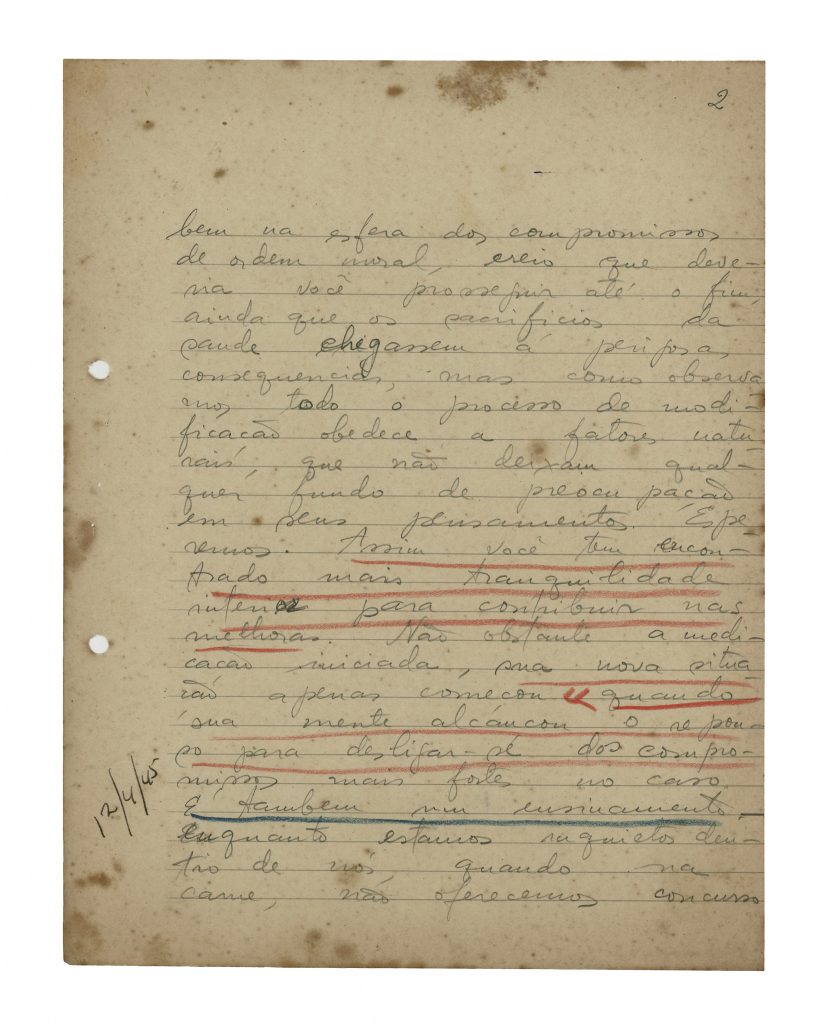 2
bem na esfera dos compromissos
de ordem moral, creio que deve-
ria você prosseguir até o fim,
ainda que os sacrificios da
saude chegassem á perigosas
consequencias, mas como observa
mos todo o processo de modi-
ficacão obedece a fatores natu
rais, que não deixam qual-
quer fundo de preocupação
em seus pensamentos. Espe
remos. Assim você tem encon-
trado mais tranquilidade
interior para contribuir nas
melhoras. Não obstante a medi-
cacão iniciada, sua nova situa
cão apenas começou quando
sua mente alcançou o repou-
so para desligar-se dos compro-
missos mais fortes no caso.
É tambem um ensinamento.
Enquanto estamos inquietos den-
tro de nós, quando na
carne, não oferecemos concurso
12/4/45